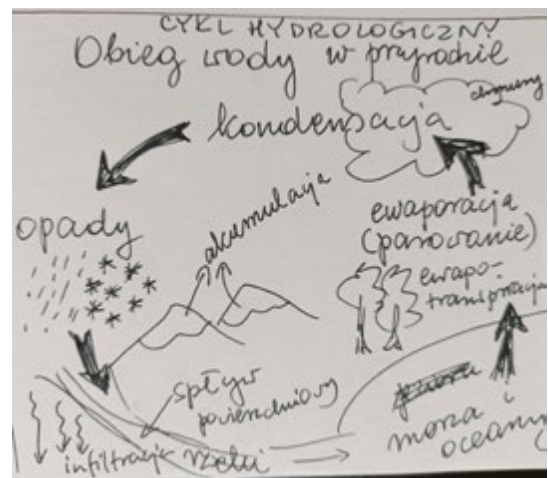 CYKL HYDROLOGICZNY
Obieg wody w przyrodzie
chmury
kondensacja
opady
akumulacja
ewaporacja
(parowanie)
ewapo-
transpiracja
spływ
powierzchniowy
infiltracja rzeki
morza i
oceany